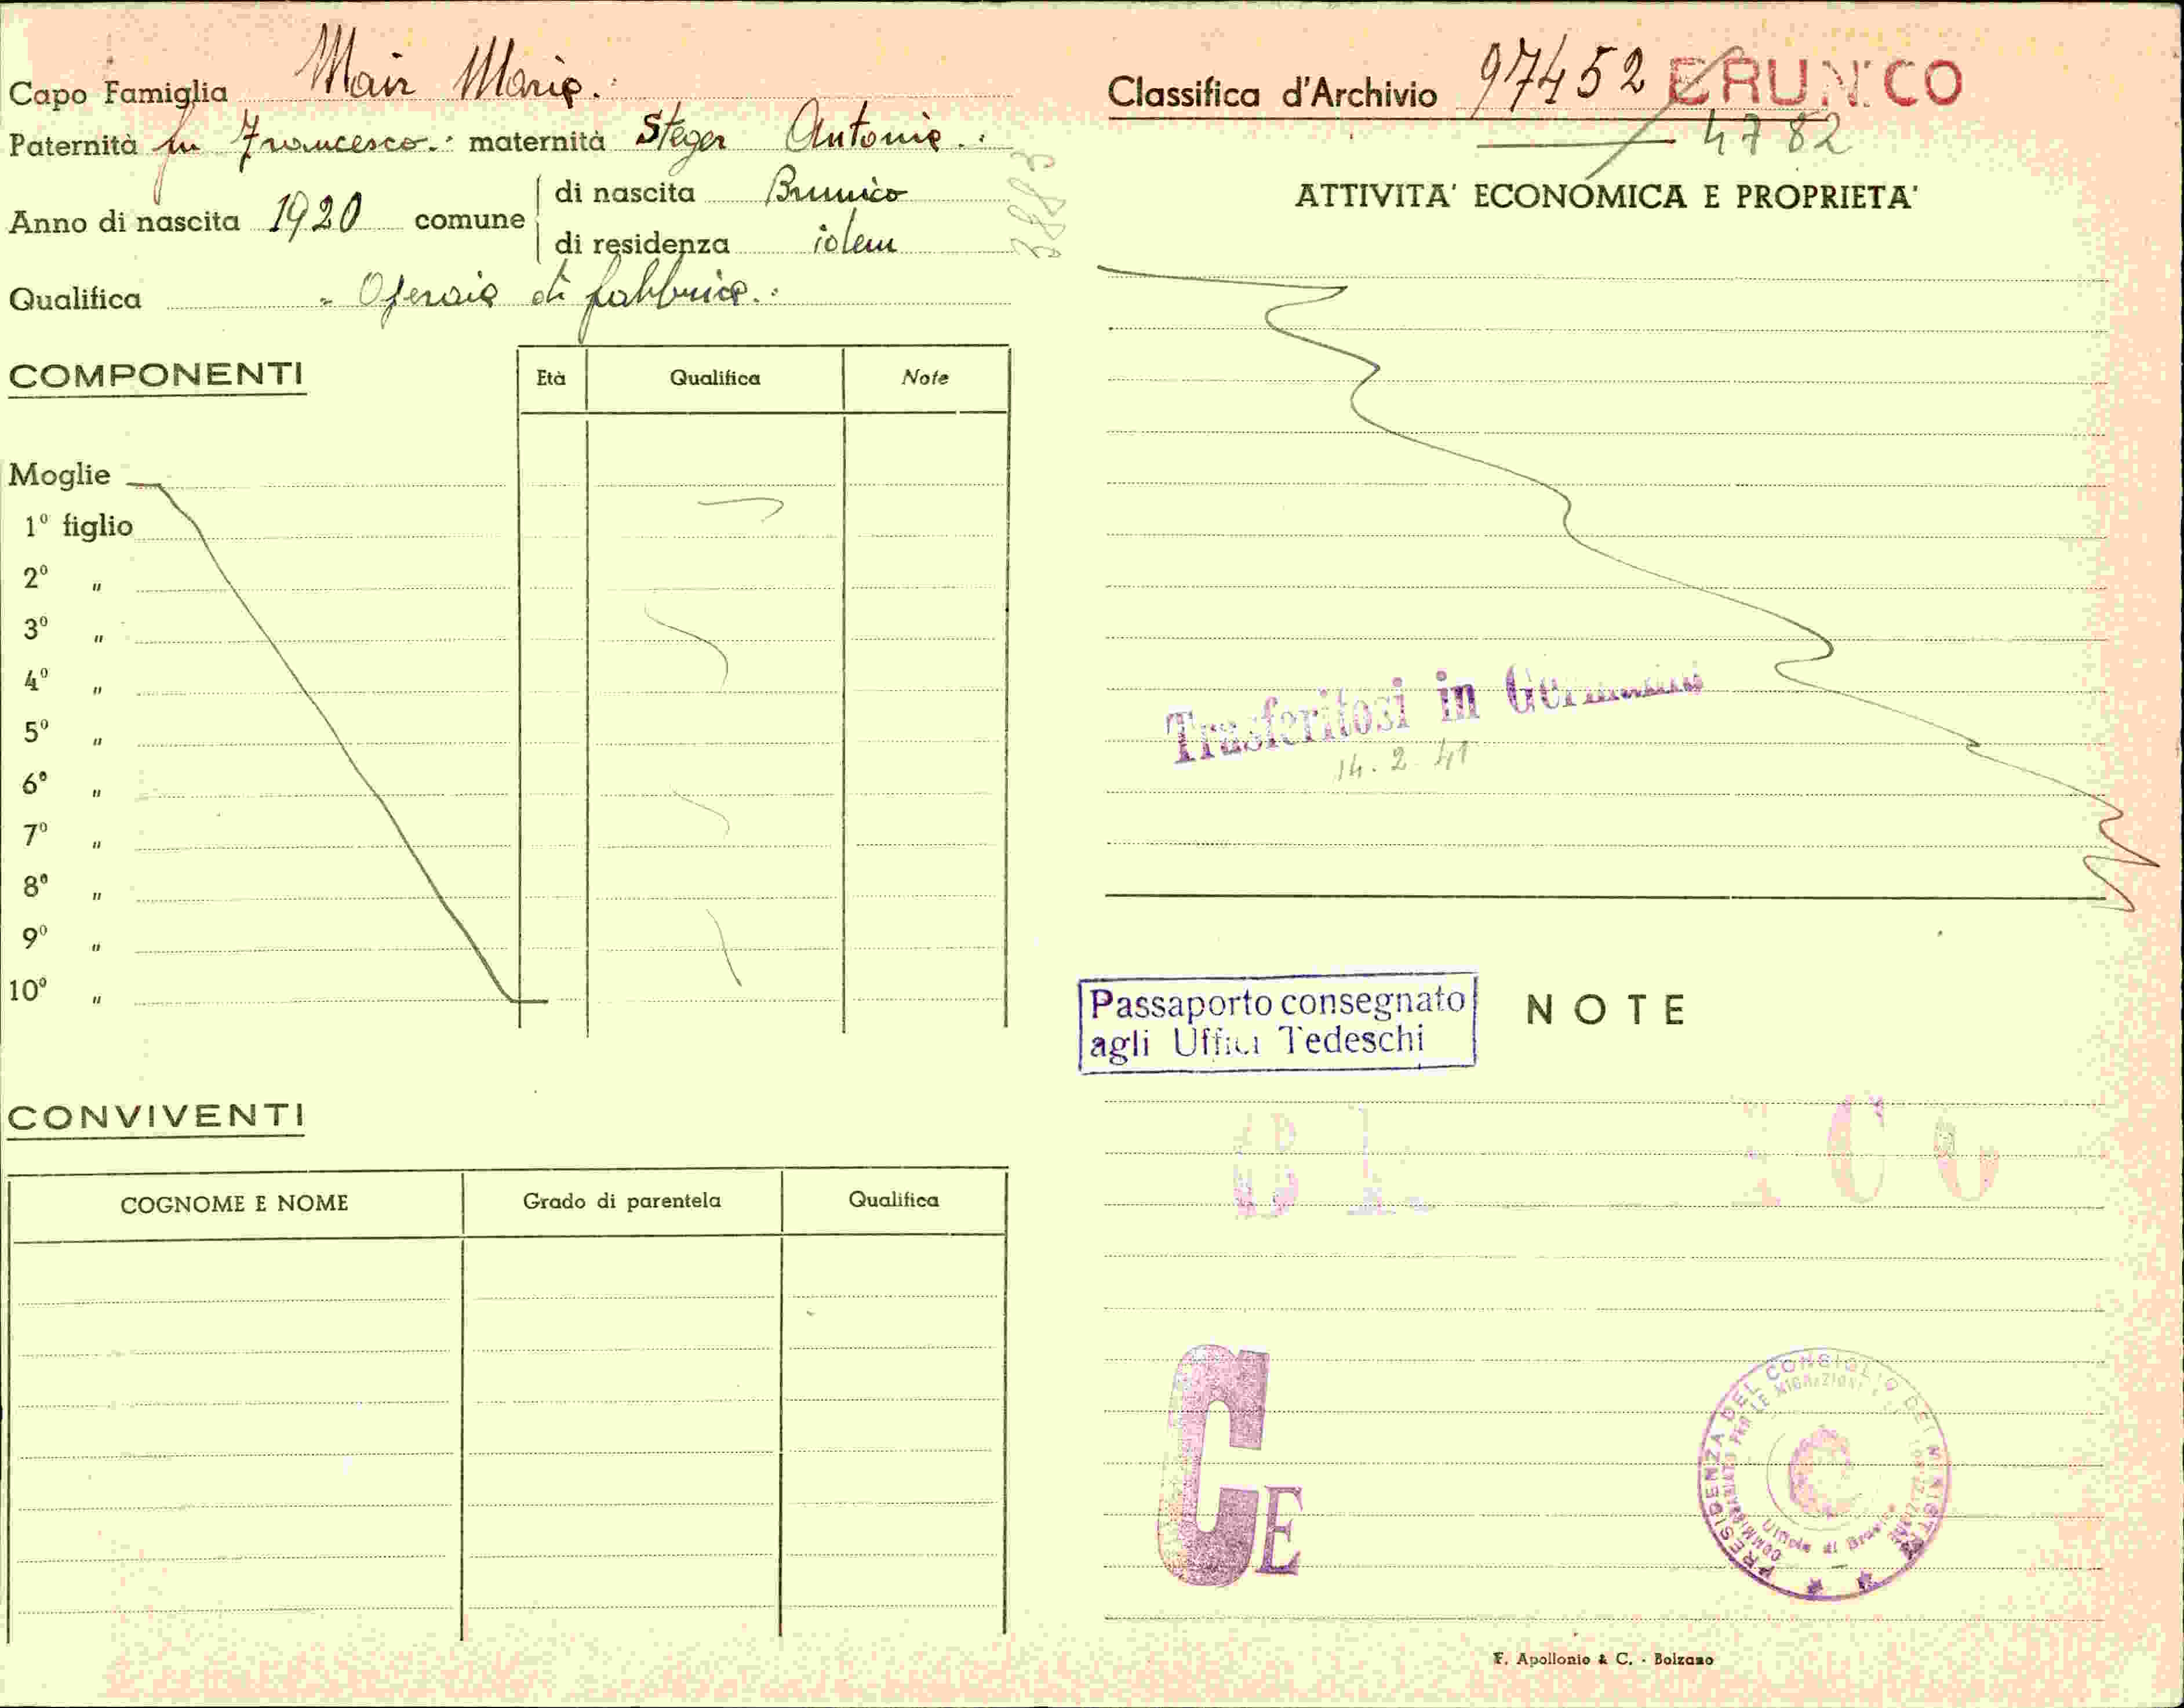 Capo Famiglia Mair Maria.
Paternità fu Francesco. maternità Steger Antonia.
Anno di nascita 1920 comune di nascita Brunico
di residenza idem
Qualifica Operaia di fabbrica.
3883
COMPONENTI
Età Qualifica Note
Moglie
1º figlio
2º "
3º "
4º "
5º "
6º "
7º "
8º "
9º "
10º "
CONVIVENTI
COGNOME E NOME Grado di parentela Qualifica
Classifica d'Archivio 97452 BRUNICO
4782
ATTIVITA' ECONOMICA E PROPRIETA'
Trasferitosi in Germania
14. 2. 41
Passaporto consegnato
agli Uffici Tedeschi
NOTE
CE
PRESIDENZA DEL CONSIGLIO DEI MINISTRI
COMMISSARIATO PER LE MIGRAZIONI
Ufficio di Brunico
F. Apollonio & C. - Bolzano